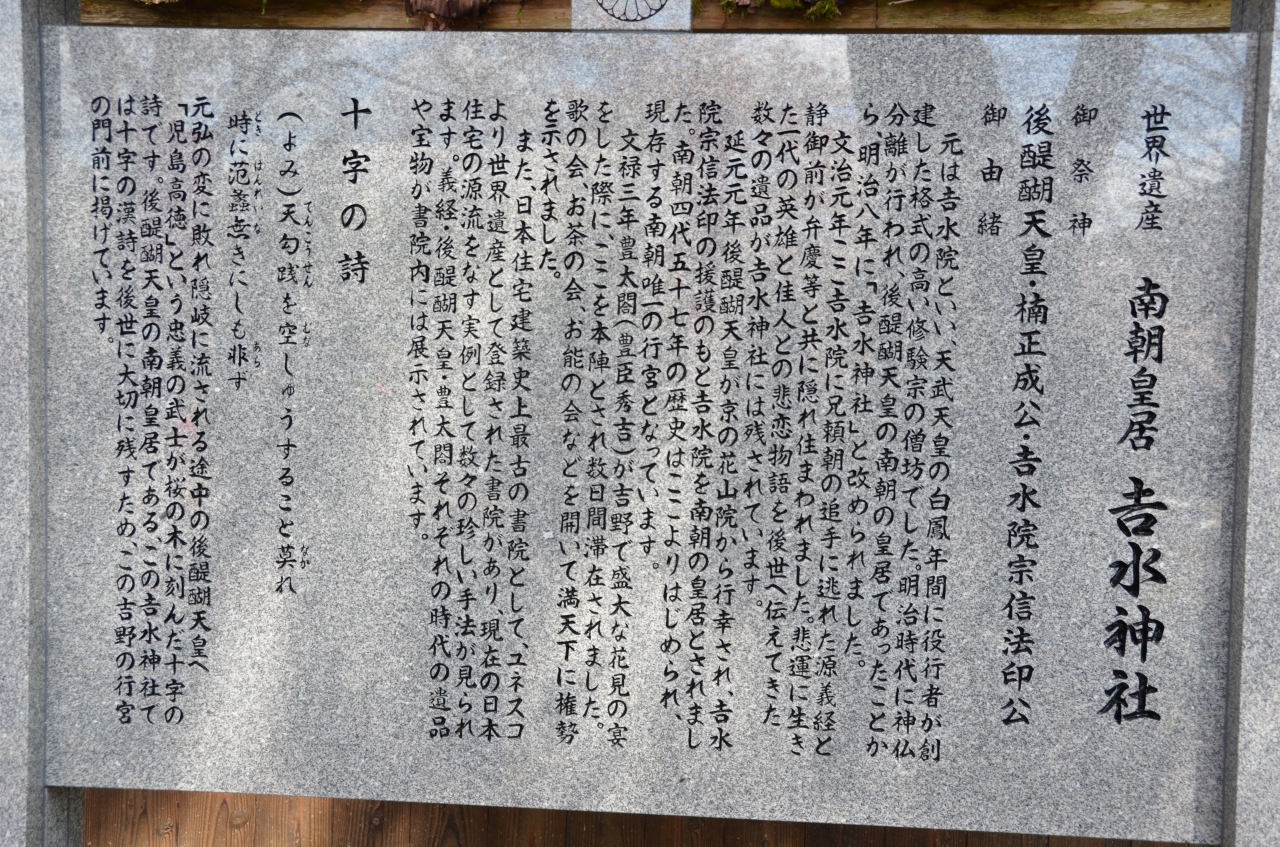 世界遺産 南朝皇居 𠮷水神社
御祭神
後醍醐天皇・楠正成公・𠮷水院宗信法印公
御由緒
元は𠮷水院といい、天武天皇の白鳳年間に役行者が創
建した格式の高い修験宗の僧坊でした。明治時代に神仏
分離が行われ、後醍醐天皇の南朝の皇居であったことか
ら、明治八年に「𠮷水神社」と改められました。
文治元年ここ𠮷水院に兄頼朝の追手に逃れた源義経と
静御前が弁慶等と共に隠れ住まわれました。悲運に生き
た一代の英雄と佳人との悲恋物語を後世へ伝えてきた
数々の遺品が𠮷水神社には残されています。
延元元年後醍醐天皇が京の花山院から行幸され、𠮷水
院宗信法印の援護のもと𠮷水院を南朝の皇居とされまし
た。南朝四代五十七年の歴史はここよりはじめられ、
現存する南朝唯一の行宮となっています。
文禄三年豊太閤(豊臣秀吉)が吉野で盛大な花見の宴
をした際に、ここを本陣とされ数日間滞在されました。
歌の会、お茶の会、お能の会などを開いて満天下に権勢
を示されました。
また、日本住宅建築史上最古の書院として、ユネスコ
より世界遺産として登録された書院があり、現在の日本
住宅の源流をなす実例として数々の珍しい手法が見られ
ます。義経・後醍醐天皇・豊太閤それぞれの時代の遺品
や宝物が書院内には展示されています。
十字の詩
(よみ)天勾践を空しゅうすること莫れ
てんこうせん むな なか
時に范蠡無きにしも非ず
とき はんれいな あら
元弘の変に敗れ隠岐に流される途中の後醍醐天皇へ
「児島高徳」という忠義の武士が桜の木に刻んだ十字の
詩です。後醍醐天皇の南朝皇居であるこの𠮷水神社で
は十字の漢詩を後世に大切に残すため、この吉野の行宮
の門前に掲げています。